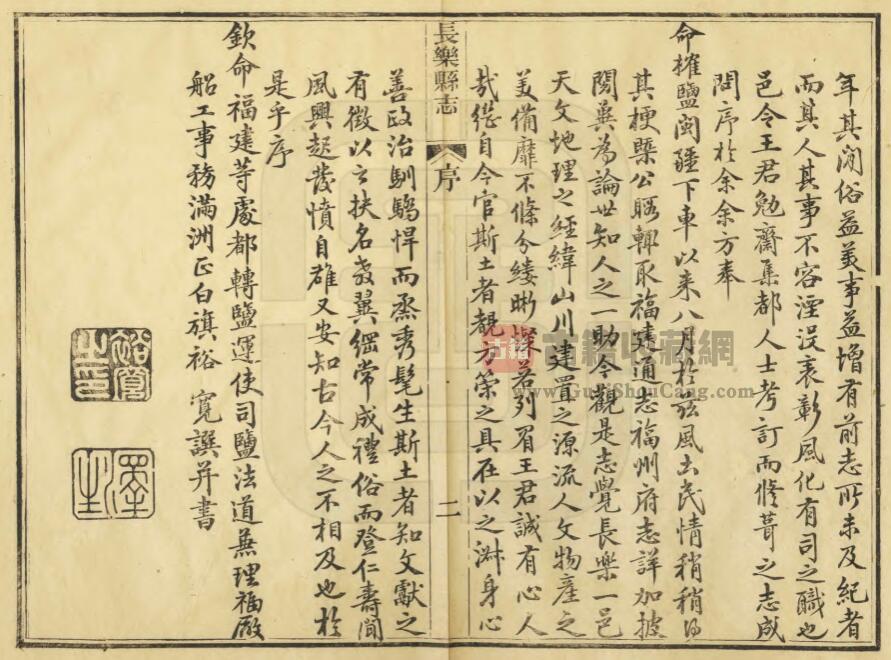 年其間俗益美事益增有前志所未及紀者
而其人其事不容湮沒表彰風化有司之職也
邑令王君勉齋集都人士考訂而修葺之志成
問序於余余方奉
命搉鹽閩疆下車以来八月於茲風土民情稍稍得
其梗槩公暇輒取福建通志福州府志詳加披
閱冀為論世知人之一助今觀是志覺長樂一邑
天文地理之經緯山川建置之源流人文物產之
美備靡不條分縷晰燦若列眉王君誠有心人
哉繼自今官斯土者覩方策之具在以之淑身心
長樂縣志
序
二
善政治馴驕悍而烝秀髦生斯土者知文獻之
有徵以之扶名教翼綱常成禮俗而登仁壽聞
風興起發憤自雄又安知古今人之不相及也於
是乎序
欽命福建等處都轉鹽運使司鹽法道兼理福廠
船工事務滿洲正白旗裕 寬譔并書
裕寬之印
古籍
古籍收藏網
www.GuJiShouCang.com